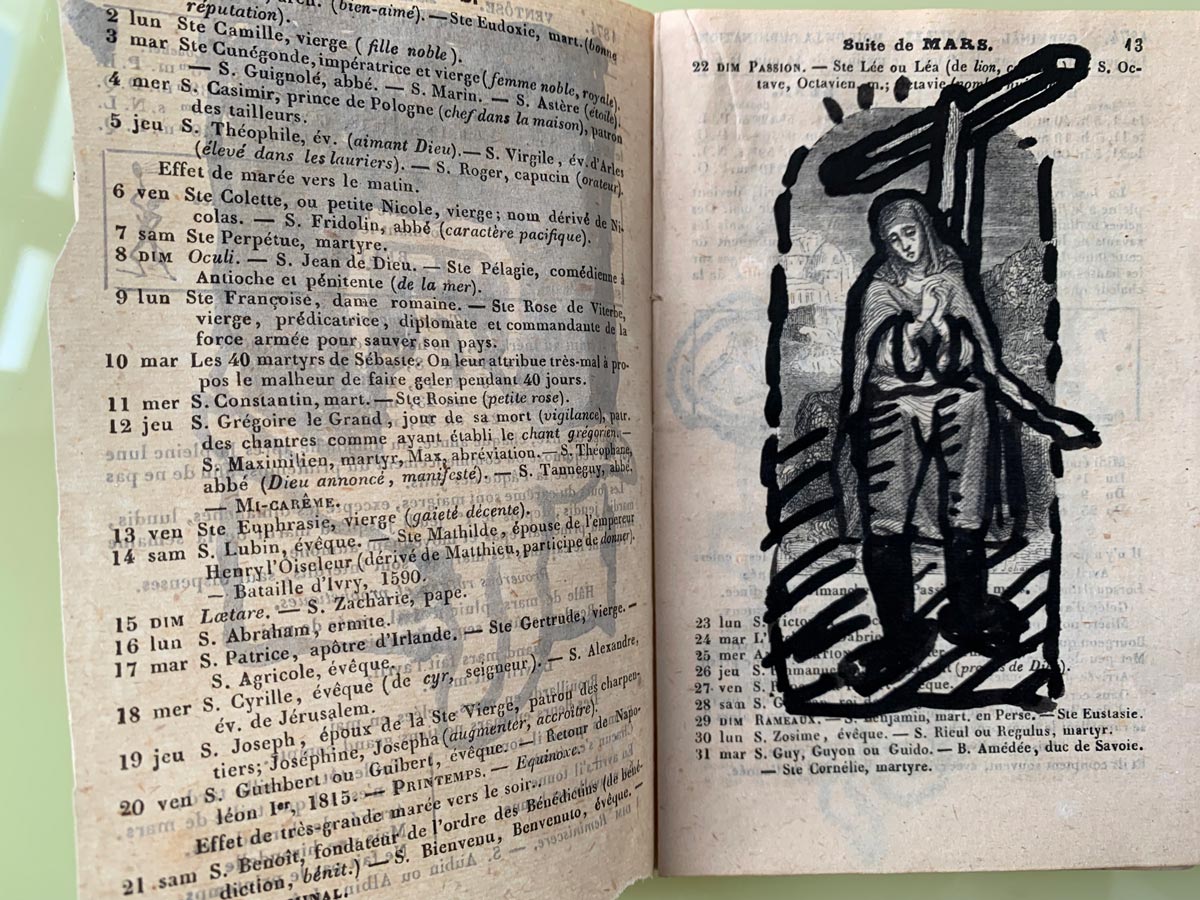 (bien-aimé). — Ste Eudoxie, mart. (bonne
réputation).
2 lun Ste Camille, vierge (fille noble).
3 mar Ste Cunégonde, impératrice et vierge (femme noble, royale).
— S. Guignolé, abbé. — S. Marin. — S. Astère (étoile).
4 mer S. Casimir, prince de Pologne (chef dans la maison), patron
des tailleurs.
5 jeu S. Théophile, év. (aimant Dieu). — S. Virgile, év. d'Arles
(élevé dans les lauriers). — S. Roger, capucin (orateur).
Effet de marée vers le matin.
6 ven Ste Colette, ou petite Nicole, vierge; nom dérivé de Ni-
colas. — S. Fridolin, abbé (caractère pacifique).
7 sam Ste Perpétue, martyre.
8 DIM Oculi. — S. Jean de Dieu. — Ste Pélagie, comédienne à
Antioche et pénitente (de la mer).
9 lun Ste Françoise, dame romaine. — Ste Rose de Viterbe,
vierge, prédicatrice, diplomate et commandante de la
force armée pour sauver son pays.
10 mar Les 40 martyrs de Sébaste. On leur attribue très-mal à pro-
pos le malheur de faire geler pendant 40 jours.
11 mer S. Constantin, mart. — Ste Rosine (petite rose).
12 jeu S. Grégoire le Grand, jour de sa mort (vigilance), patr.
des chantres comme ayant établi le chant grégorien. —
S. Maximilien, martyr, Max, abréviation. — S. Théophane,
abbé (Dieu annoncé, manifesté). — S. Tanneguy, abbé.
— MI-CARÊME.
13 ven Ste Euphrasie, vierge (gaieté décente).
14 sam S. Lubin, évêque. — Ste Mathilde, épouse de l'empereur
Henry l'Oiseleur (dérivé de Matthieu, participe de donner).
— Bataille d'Ivry, 1590.
15 DIM Lœtare. — S. Zacharie, pape.
16 lun S. Abraham, ermite.
17 mar S. Patrice, apôtre d'Irlande. — Ste Gertrude, vierge. —
S. Agricole, évêque.
18 mer S. Cyrille, évêque (de cyr, seigneur). — S. Alexandre,
év. de Jérusalem.
19 jeu S. Joseph, époux de la Ste Vierge, patron des charpen-
tiers; Joséphine, Josépha (augmenter, accroître).
20 ven S. Guthbert ou Guibert, évêque. — Retour de Napo-
léon Ier, 1815. — PRINTEMPS. — Equinoxe.
Effet de très-grande marée vers le soir.
21 sam S. Benoît, fondateur de l'ordre des Bénédictins (de béné-
diction, bénit.) — S. Bienvenu, Benvenuto, évêque. —
Suite de MARS. 13
22 DIM PASSION. — Ste Lée ou Léa (de lion, S. Oc-
tave, Octavien, m.; Octavie
23 lun S.
24 mar
25 mer
26 jeu S. de Di
27 ven S.
28 sam S.
29 DIM RAMEAUX. — S. Benjamin, mart. en Perse. — Ste Eustasie.
30 lun S. Zosime, évêque. — S. Rieul ou Regulus, martyr.
31 mar S. Guy, Guyon ou Guido. — B. Amédée, duc de Savoie.
— Ste Cornélie, martyre.